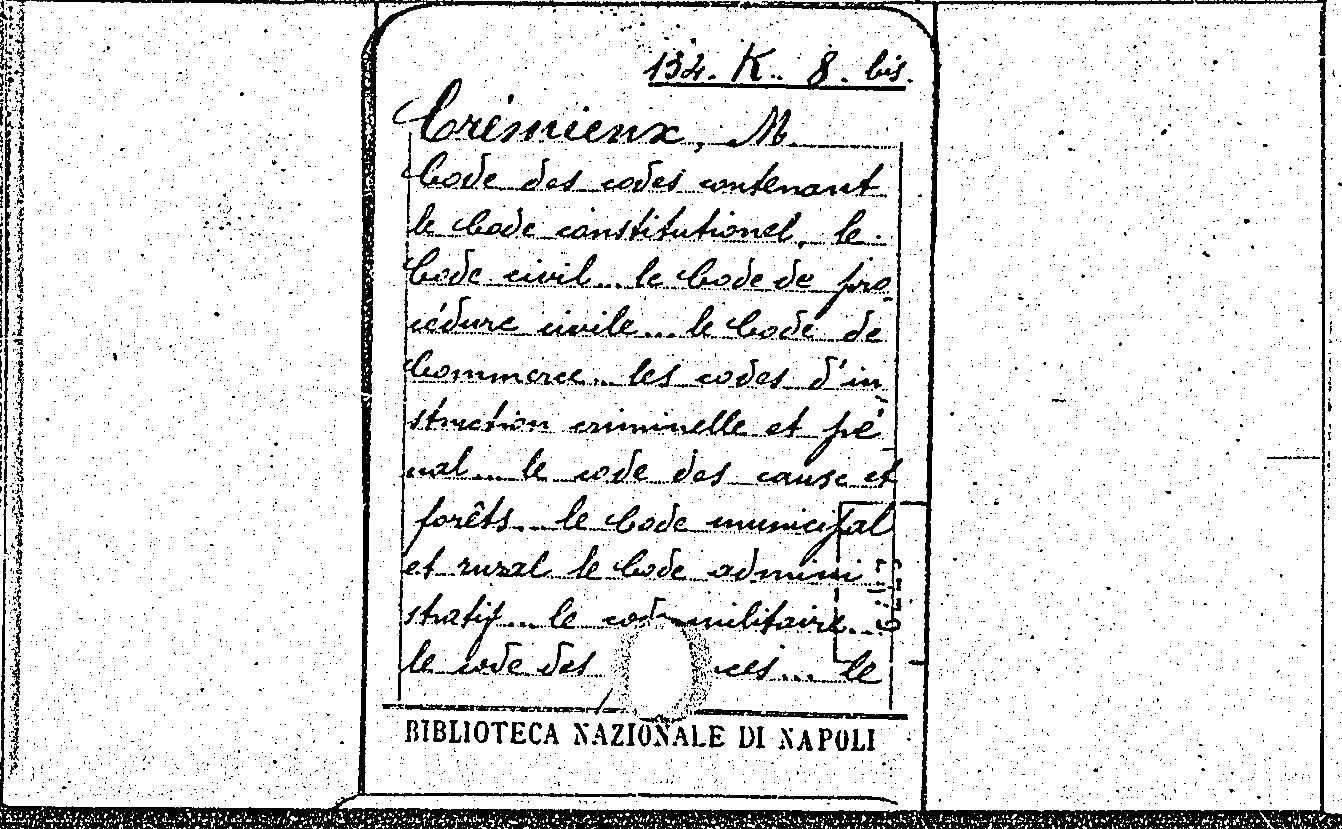 134. K. 8. bis.
Crémieux, M.
Code des codes contenant
le Code constitutionel, le
Code civil... le Code de pro
cédure civile... le Code de
Commerce... les codes d'in
struction criminelle et pé
nal... le code des cause et
forêts... le Code municipal
et rural le Code admini
stratif... le code militaire...
le code des ces... le
BIBLIOTECA NAZIONALE DI NAPOLI